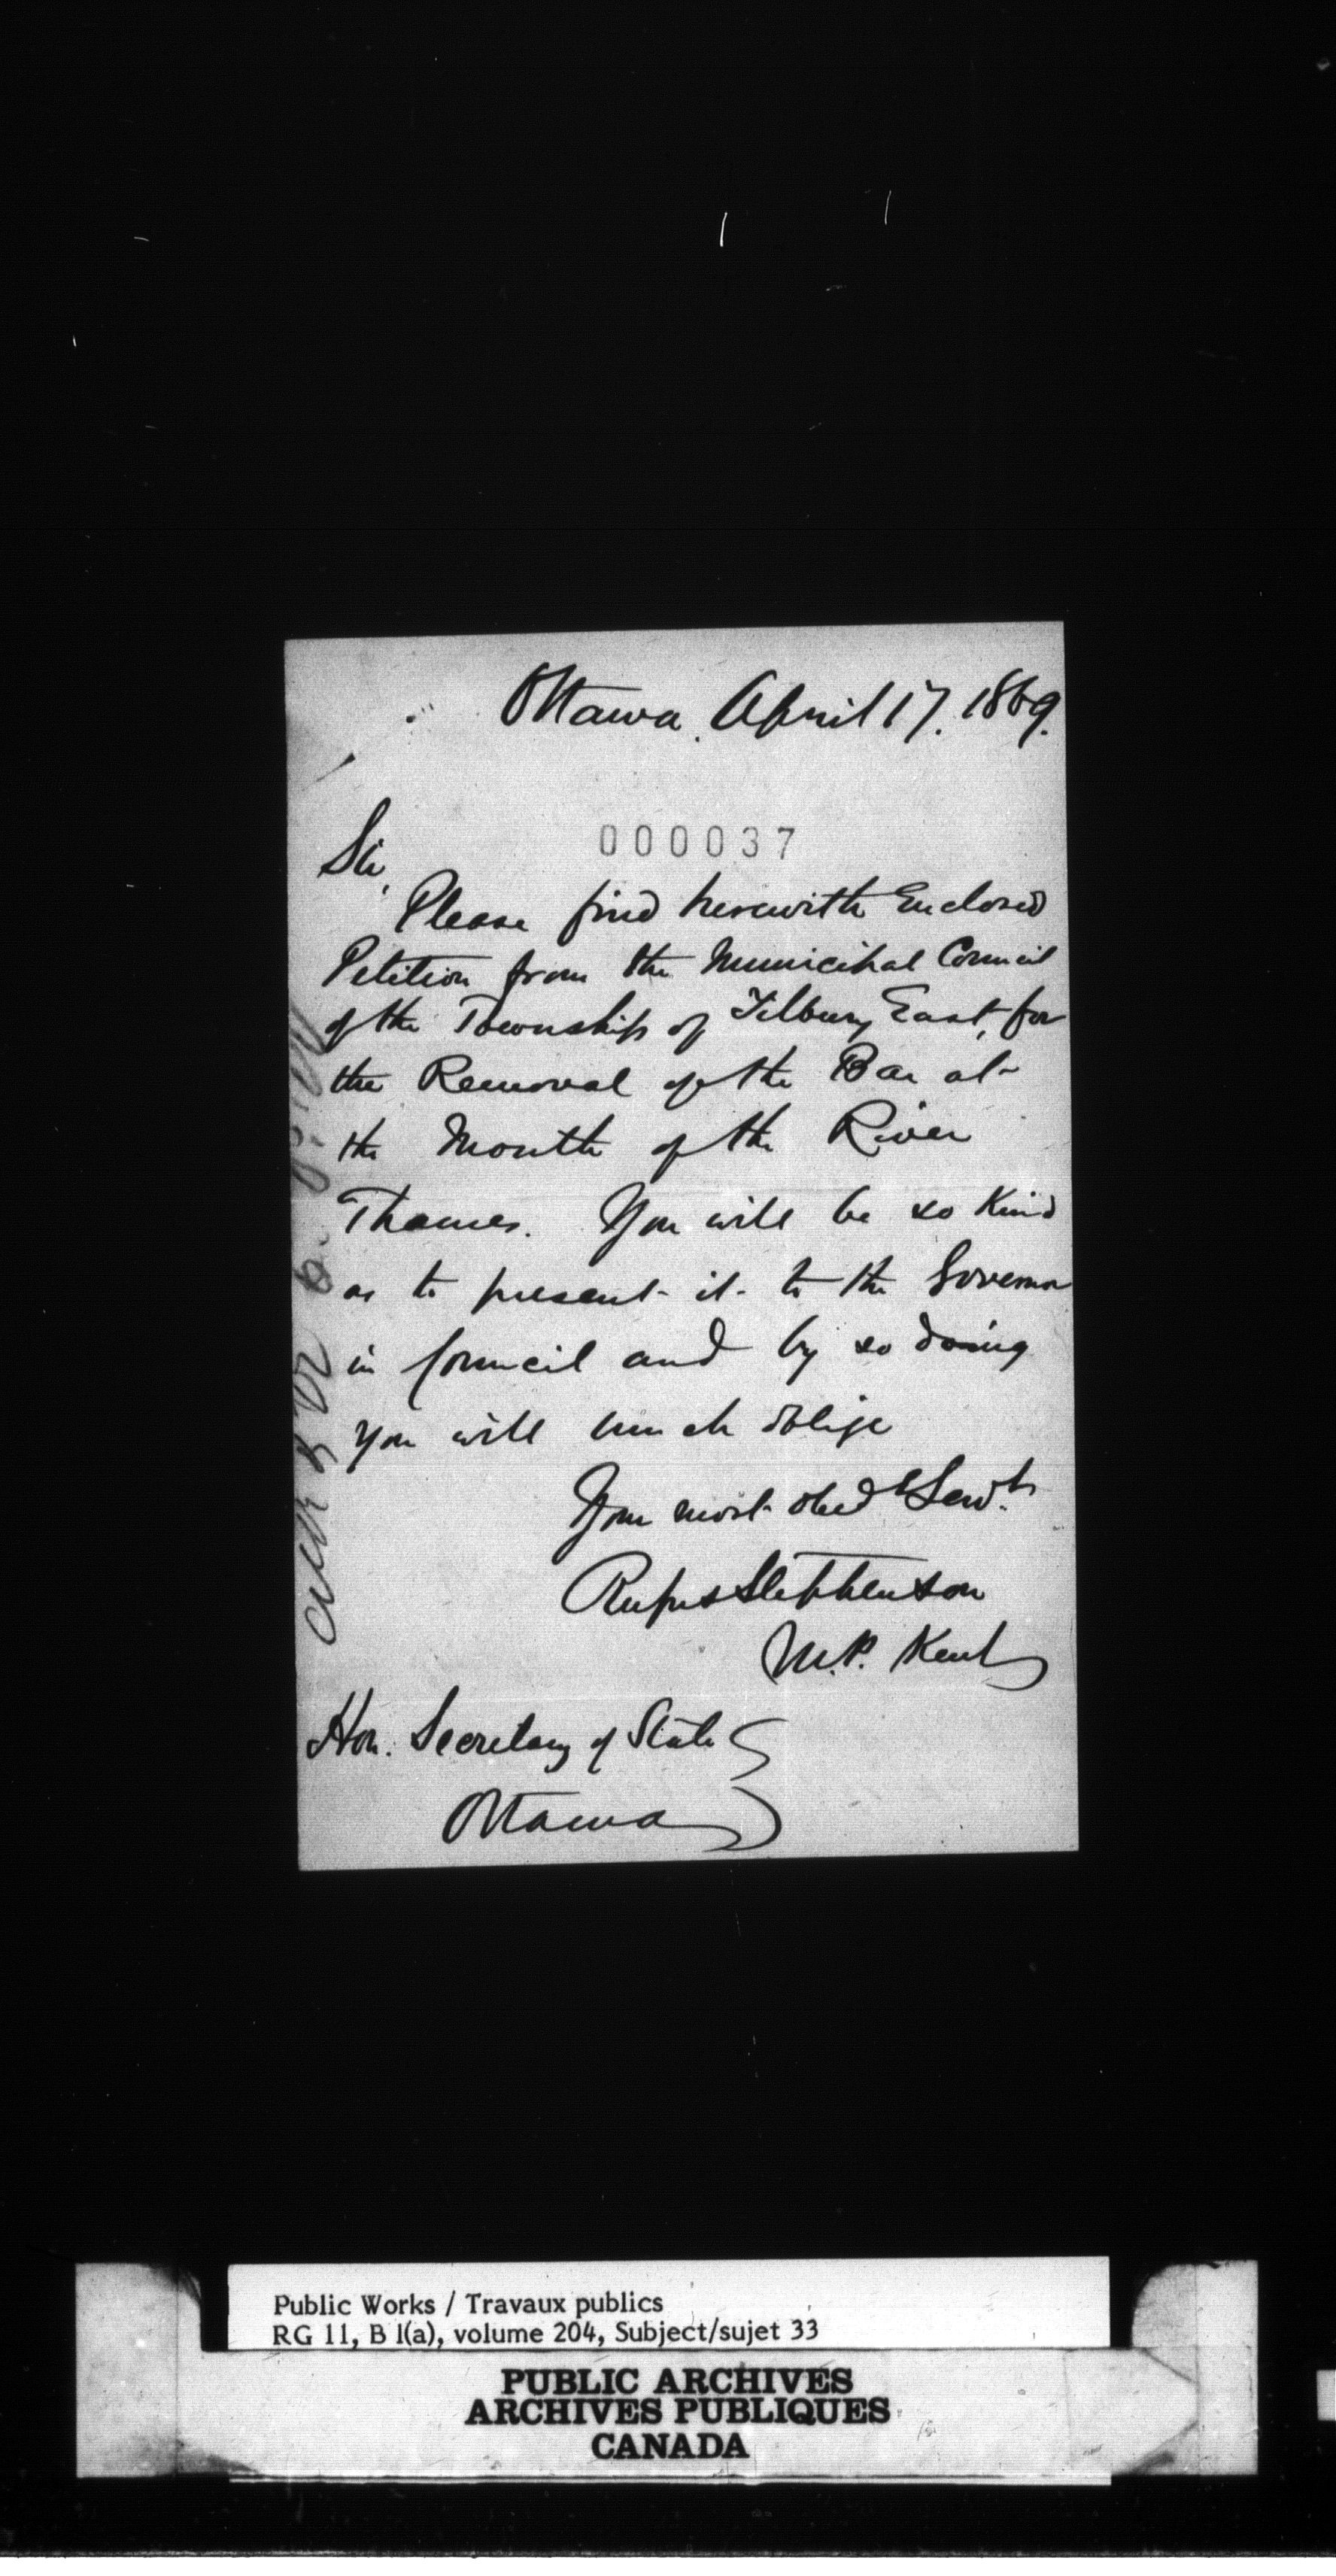 Ottawa. April 17. 1869.
000037
Sir,
Please find herewith Enclosed
Petition from the Municipal Council
of the Township of Tilbury East, for
the Removal of the Bar at
the Mouth of the River
Thames. You will be so Kind
as to present it to the Governor
in Council and by so doing
you will much oblige
Your most obedt Servt.
Rufus Stephenson
M.P. Kent
Hon. Secretary of State
Ottawa
Public Works / Travaux publics
RG 11, B 1(a), volume 204, Subject/sujet 33
PUBLIC ARCHIVES
ARCHIVES PUBLIQUES
CANADA